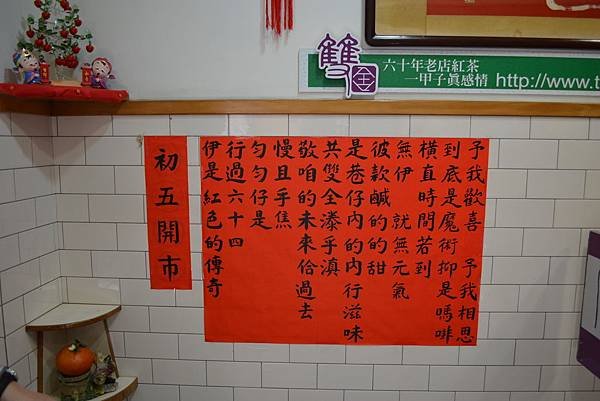 雙
全
六十年老店紅茶
一甲子眞感情 http://www.t
予我歡喜 予我相思
到底是魔術抑是嗎啡
橫直時間若到
無伊 就無元氣
彼款鹹的的甜
是巷仔內的內行滋味
共雙全乎滇
敬咱的未來佮過去
慢且乎焦
勻勻仔是
行過六十四
伊是紅色的傳奇
初五開市